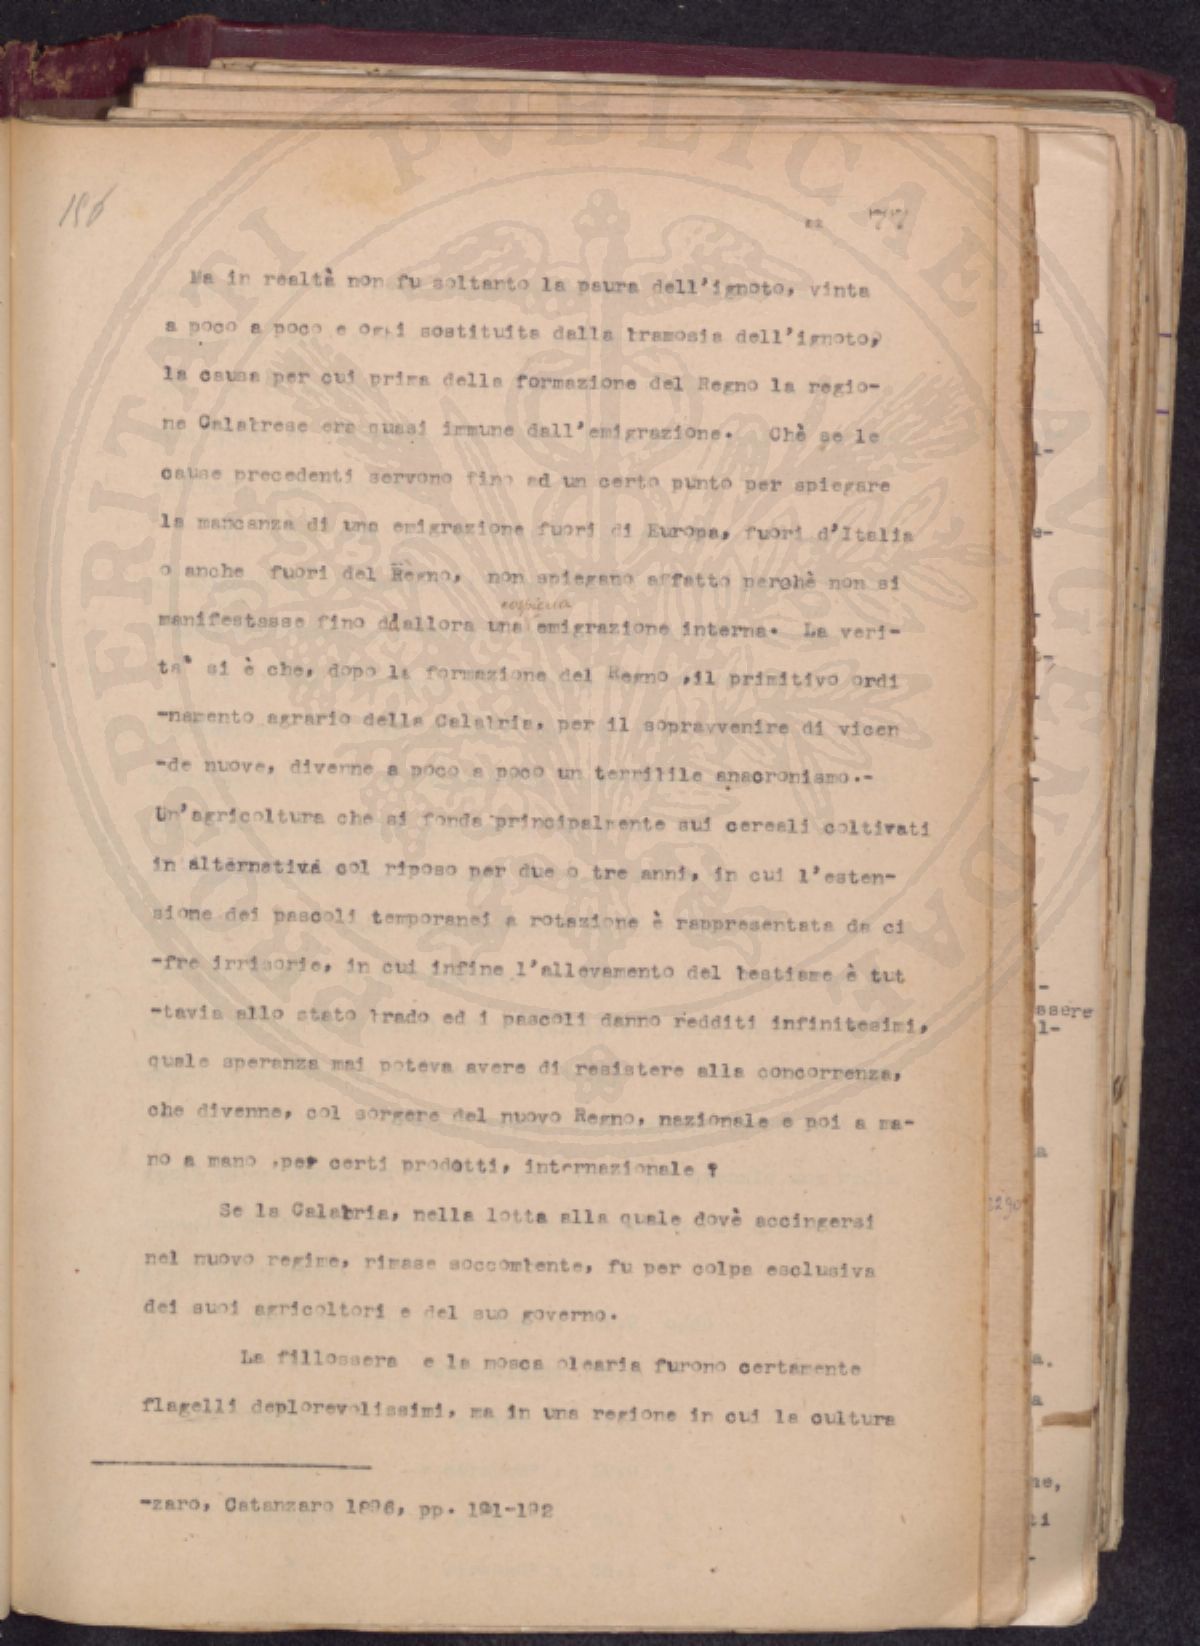 186
82 77
Ma in realtà non fu soltanto la paura dell'ignoto, vinta
a poco a poco e oggi sostituita dalla bramosia dell'ignoto,
la causa per cui prima della formazione del Regno la regio-
ne Calabrese era quasi immune dall'emigrazione. Chè se le
cause precedenti servono fino ad un certo punto per spiegare
la mancanza di una emigrazione fuori di Europa, fuori d'Italia
o anche fuori del Regno, non spiegano affatto perchè non si
cospicua
manifestasse fino d'allora una emigrazione interna. La veri-
ta' si è che, dopo la formazione del Regno ,il primitivo ordi
-namento agrario della Calabria, per il sopravvenire di vicen
-de nuove, divenne a poco a poco un terribile anacronismo.-
Un'agricoltura che si fonda principalmente sui cereali coltivati
in alternativa col riposo per due o tre anni, in cui l'esten-
sione dei pascoli temporanei a rotazione è rappresentata da ci
-fre irrisorie, in cui infine l'allevamento del bestiame è tut
-tavia allo stato brado ed i pascoli danno redditi infinitesimi,
quale speranza mai poteva avere di resistere alla concorrenza,
che divenne, col sorgere del nuovo Regno, nazionale e poi a ma-
no a mano ,per certi prodotti, internazionale ?
Se la Calabria, nella lotta alla quale dovè accingersi
nel nuovo regime, rimase soccombente, fu per colpa esclusiva
dei suoi agricoltori e del suo governo.
La fillossera e la mosca olearia furono certamente
flagelli deplorevolissimi, ma in una regione in cui la cultura
-zaro, Catanzaro 1896, pp. 191-192